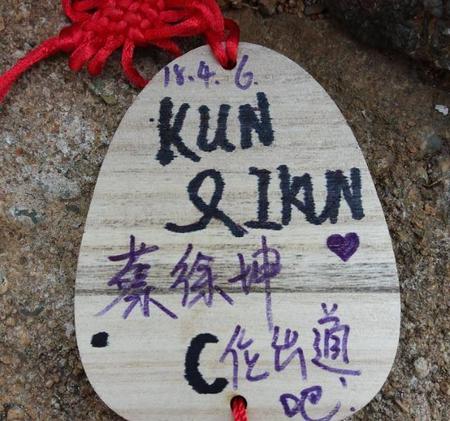 18.4.6.
KUN
& IKUN
蔡徐坤
C位出道
吧!